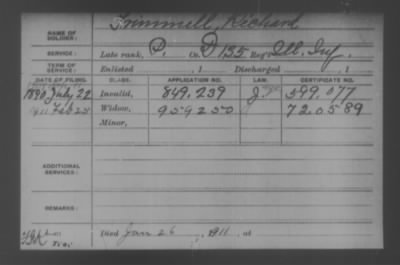 Trimmell, Richard
NAME OF SOLDIER:
SERVICE: Late rank, P. Co. D 135 Reg't Ill. Inf.
TERM OF SERVICE: Enlisted , 1 Discharged , 1
DATE OF FILING. CLASS. APPLICATION NO. LAW. CERTIFICATE NO.
1890 July 22 Invalid, 849.239 599.077
1911 Feb 25 Widow, 959250 72.05 89
Minor,
ADDITIONAL SERVICES:
REMARKS:
Died Jan 26, 1911, at